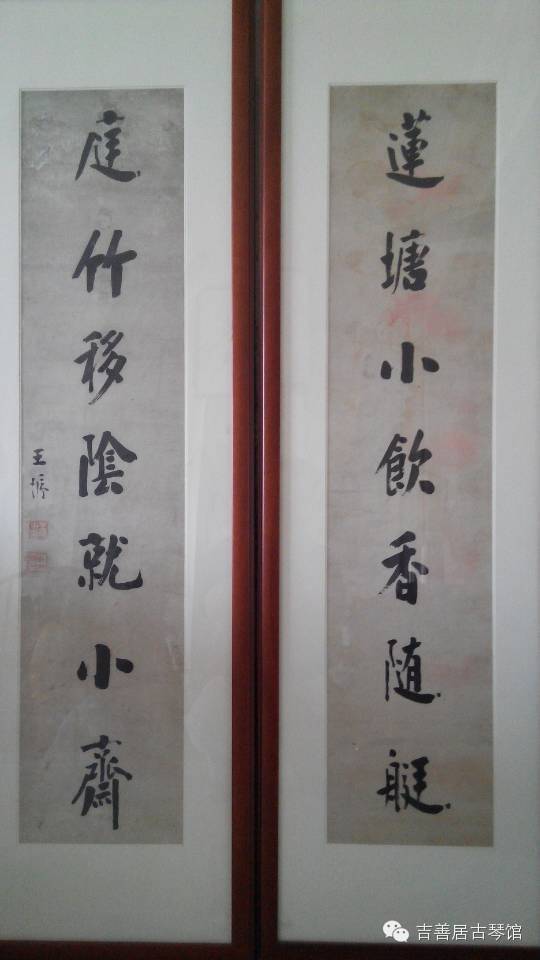 蓮塘小飲香随艇
庭竹移陰就小齋
王
吉善居古琴馆